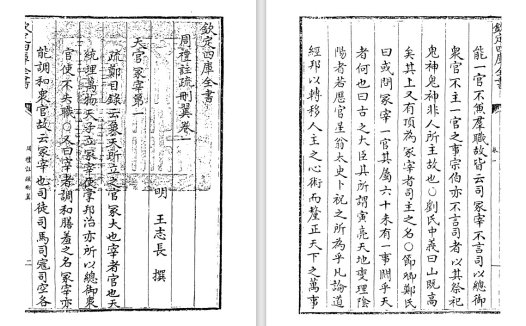 欽定四庫全書
周禮註疏刪翼卷一
明 王志長 撰
天官冢宰第一
疏鄭目錄云象天所立之官冢大也宰者官也天
統理萬物天子立冢宰使掌邦治亦所以總御衆
官使不失職○又曰宰者調和膳羞之名冢宰亦
能調和衆官故云冢宰也司徒司馬司寇司空各
欽定四庫全書
能一官不兼羣職故皆云司冢宰不言司以總御
衆官不主一官之事宗伯亦不言司者以其祭祀
鬼神鬼神非人所主故也○劉氏中義曰山既高
矣其上又有頂為冢宰者司主之名○節卿鄭氏
曰或問冢宰一官其屬六十未有一事關乎天
者何也曰古之大臣其所謂寅亮天地爕理陰
陽者若官星翁太史卜祝之所為乎凡論道
經邦以轉移人主之心術而釐正天下之萬事